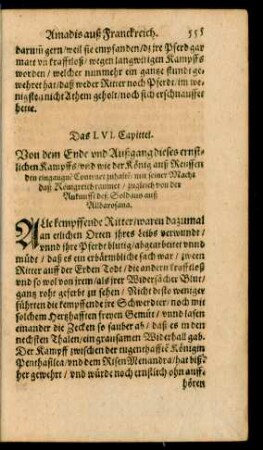 Amadis auß Franckreich. 555
darumb gern / weil sie empfanden / dz ire Pferd gar
mat vñ krafftloß / wegen langwirigen Kampffs
worden / welcher nunmehr ein gantze stund gewehret
hat / daß weder Ritter noch Pferdt / im wenigsten
nicht Athem geholt / noch sich erschnauffet
hette.
Das LVI. Capittel.
Von dem Ende vnd Außgang dieses ernstlichen
Kampffs / vnd wie der König auß Reussen
den eingangnẽ Contract zuhaltẽ / mit seiner Macht
daß Königreich raumet / zugleich von der
Ankunfft deß Soldans auß
Aldarosana.
ALle kempffende Ritter / waren dazumal
an etlichen Orten jhres leibs verwundt /
vnnd jhre Pferdt blutig / abgearbeitet vnnd
müde / daß es ein erbärmbliche sach war / zween
Ritter auff der Erden Todt / die andern krafftloß
vnd so wol von jrem / als jhrer Widersächer Blut /
gantz roht geferbt zu sehen / Nicht desto weniger
führten die kempffende jre Schwerdter / noch mit
solchem Hertzhafften freyen Gemüt / vnnd lasen
einander die Zecken so sauber ab / daß es in den
nechsten Thalen / ein grausamen Widerhall gab.
Der Kampff zwischen der tugenthafften Königin
Penthasilea / vnd dem Risen Menandra / hat bißher
gewehrt / vnd würde noch ernstlich ohn auff-
hören